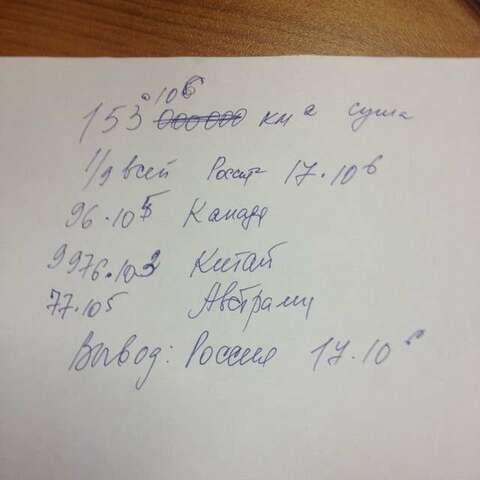 153·10⁶ км² суша
1/9 всей Россия 17·10⁶
96·10⁵ Канада
9976·10³ Китай
77·10⁵ Австралия
Вывод: Россия 17·10⁶